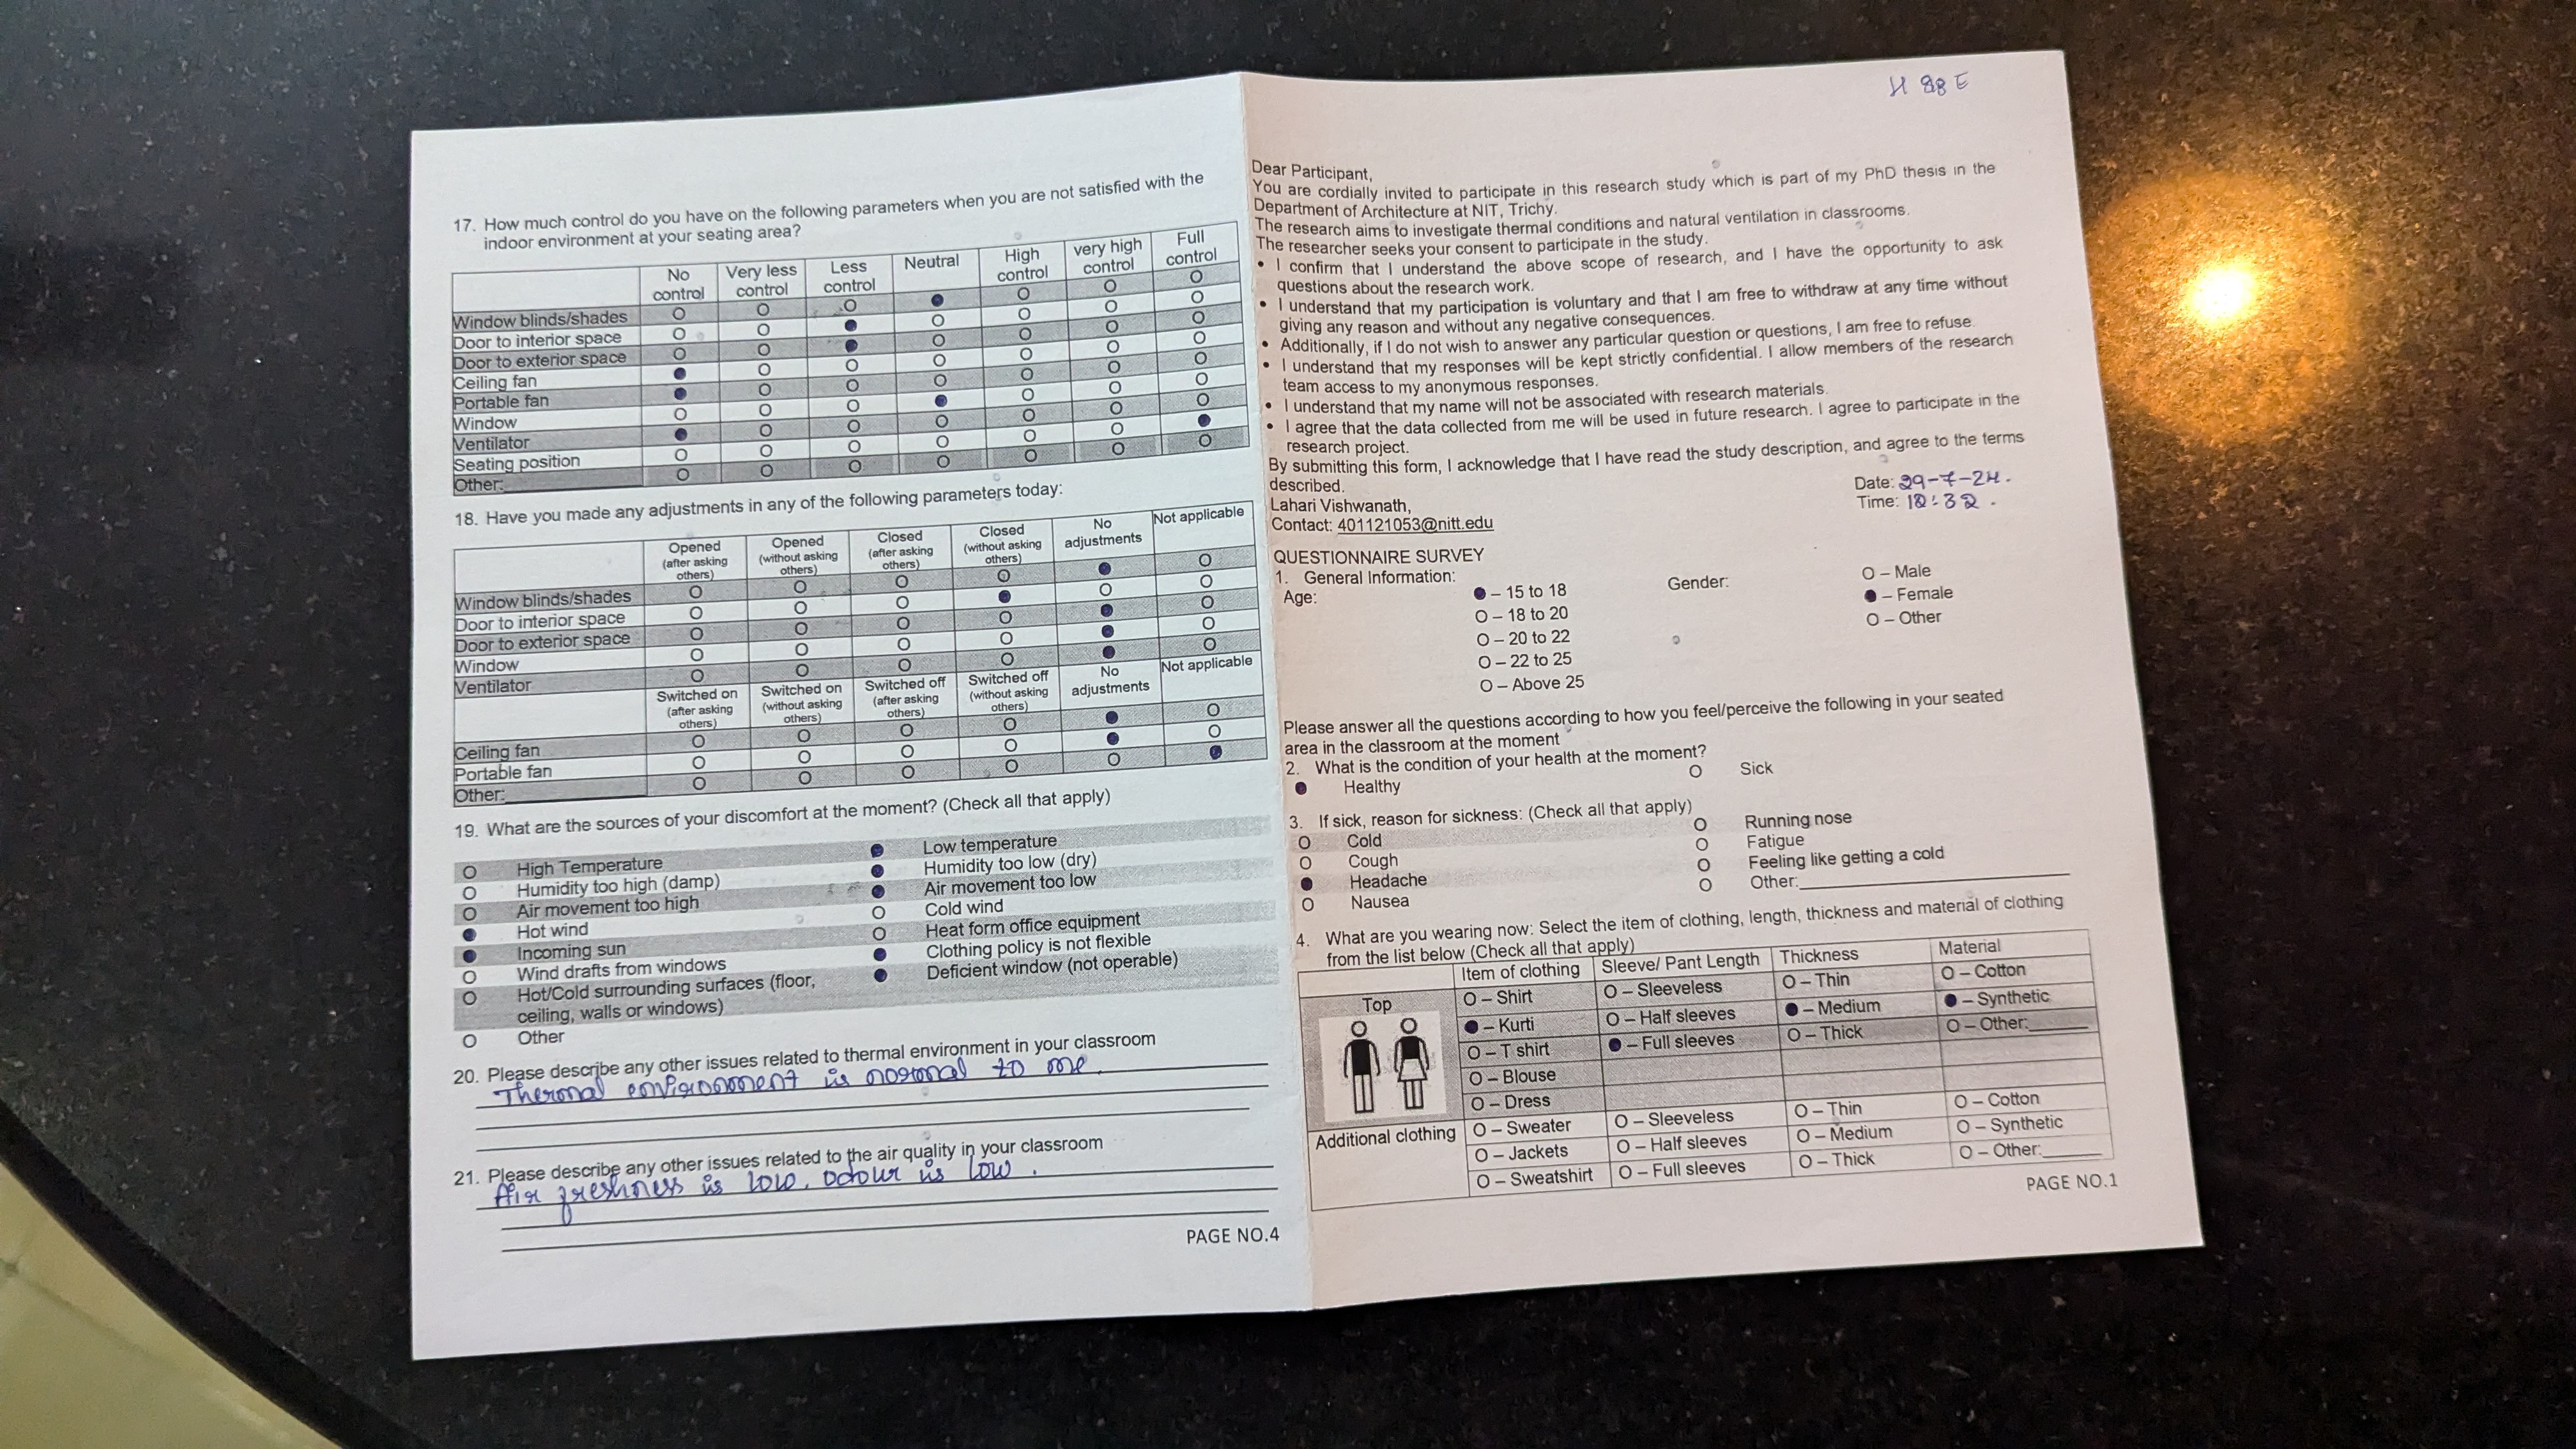 17. How much control do you have on the following parameters when you are not satisfied with the
indoor environment at your seating area?
No control Very less control Less control Neutral High control very high control Full control
Window blinds/shades O O O ● O O O
Door to interior space O O ● O O O O
Door to exterior space O O ● O O O O
Ceiling fan ● O O O O O O
Portable fan ● O O O O O O
Window O O O ● O O O
Ventilator ● O O O O O O
Seating position O O O O O O ●
Other: O O O O O O O
18. Have you made any adjustments in any of the following parameters today:
Opened (after asking others) Opened (without asking others) Closed (after asking others) Closed (without asking others) No adjustments Not applicable
Window blinds/shades O O O O ● O
Door to interior space O O O ● O O
Door to exterior space O O O O ● O
Window O O O O ● O
Ventilator O O O O ● O
Switched on (after asking others) Switched on (without asking others) Switched off (after asking others) Switched off (without asking others) No adjustments Not applicable
Ceiling fan O O O O ● O
Portable fan O O O O ● O
Other: O O O O O ●
19. What are the sources of your discomfort at the moment? (Check all that apply)
O High Temperature ● Low temperature
O Humidity too high (damp) ● Humidity too low (dry)
O Air movement too high ● Air movement too low
● Hot wind O Cold wind
● Incoming sun O Heat form office equipment
O Wind drafts from windows ● Clothing policy is not flexible
O Hot/Cold surrounding surfaces (floor, ● Deficient window (not operable)
ceiling, walls or windows)
O Other
20. Please describe any other issues related to thermal environment in your classroom
Thermal environment is normal to me.
21. Please describe any other issues related to the air quality in your classroom
Air freshness is low. Odour is low.
PAGE NO.4
H 88 E
Dear Participant,
You are cordially invited to participate in this research study which is part of my PhD thesis in the
Department of Architecture at NIT, Trichy.
The research aims to investigate thermal conditions and natural ventilation in classrooms.
The researcher seeks your consent to participate in the study.
• I confirm that I understand the above scope of research, and I have the opportunity to ask
questions about the research work.
• I understand that my participation is voluntary and that I am free to withdraw at any time without
giving any reason and without any negative consequences.
• Additionally, if I do not wish to answer any particular question or questions, I am free to refuse.
• I understand that my responses will be kept strictly confidential. I allow members of the research
team access to my anonymous responses.
• I understand that my name will not be associated with research materials.
• I agree that the data collected from me will be used in future research. I agree to participate in the
research project.
By submitting this form, I acknowledge that I have read the study description, and agree to the terms
described.
Lahari Vishwanath,
Contact: 401121053@nitt.edu
Date: 29-7-24.
Time: 12:32.
QUESTIONNAIRE SURVEY
1. General Information:
Age: ● – 15 to 18 Gender: O – Male
O – 18 to 20 ● – Female
O – 20 to 22 O – Other
O – 22 to 25
O – Above 25
Please answer all the questions according to how you feel/perceive the following in your seated
area in the classroom at the moment
2. What is the condition of your health at the moment?
● Healthy O Sick
3. If sick, reason for sickness: (Check all that apply)
O Cold O Running nose
O Cough O Fatigue
● Headache O Feeling like getting a cold
O Nausea O Other:
4. What are you wearing now: Select the item of clothing, length, thickness and material of clothing
from the list below (Check all that apply)
Item of clothing Sleeve/ Pant Length Thickness Material
Top O – Shirt O – Sleeveless O – Thin O – Cotton
● – Kurti O – Half sleeves ● – Medium ● – Synthetic
O – T shirt ● – Full sleeves O – Thick O – Other:
O – Blouse
O – Dress
Additional clothing O – Sweater O – Sleeveless O – Thin O – Cotton
O – Jackets O – Half sleeves O – Medium O – Synthetic
O – Sweatshirt O – Full sleeves O – Thick O – Other:
PAGE NO.1